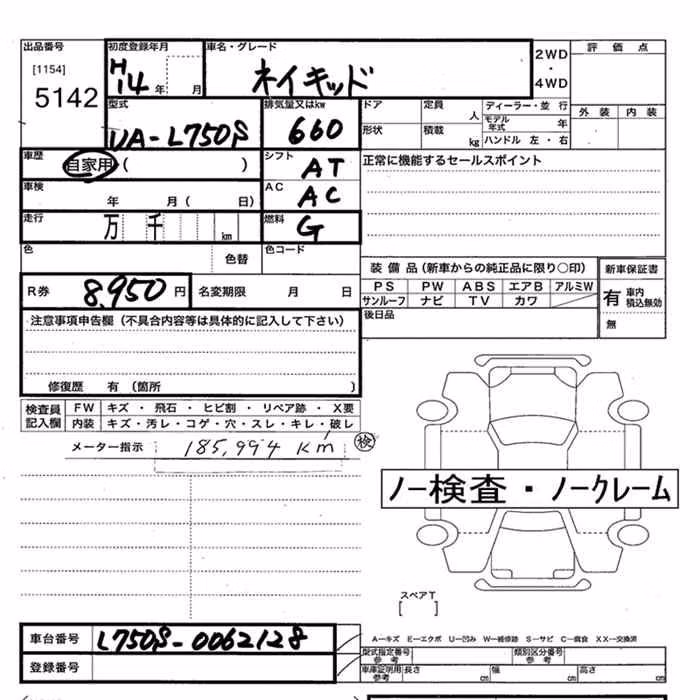 出品番号 初度登録年月 車名・グレード 2WD ・ 4WD 評価点
[1154] 5142 H14 年 月 ネイキッド
外装 内装
型式 UA-L750S 排気量又はkw 660
ドア 定員 人 ディーラー・並行
形状 積載 kg モデル年式 年
ハンドル 左・右
車歴 自家用 ( ) シフト AT 正常に機能するセールスポイント
車検 年 月( 日) AC AC
走行 万 千 km 燃料 G
色 色替 色コード
装備品(新車からの純正品に限り○印) 新車保証書
PS PW ABS エアB アルミW
サンルーフ ナビ TV カワ
有 車内積込無効
無
R券 8,950 円 名変期限 月 日
後日品
注意事項申告欄(不具合内容等は具体的に記入して下さい)
修復歴 有 (箇所 )
検査員記入欄 FW キズ ・ 飛石 ・ ヒビ割 ・ リペア跡 ・ X要
内装 キズ・汚レ・コゲ・穴・スレ・キレ・破レ
メーター指示 185,994 km 検
ノー検査・ノークレーム
スペアT
[ ]
車台番号 L750S-0062128
登録番号
A−キズ E−エクボ U−凹み W−補修跡 S−サビ C−腐食 XX−交換済
型式指定番号 参考 類別区分番号 参考
車庫証明用 参考 長さ cm 幅 cm 高さ cm